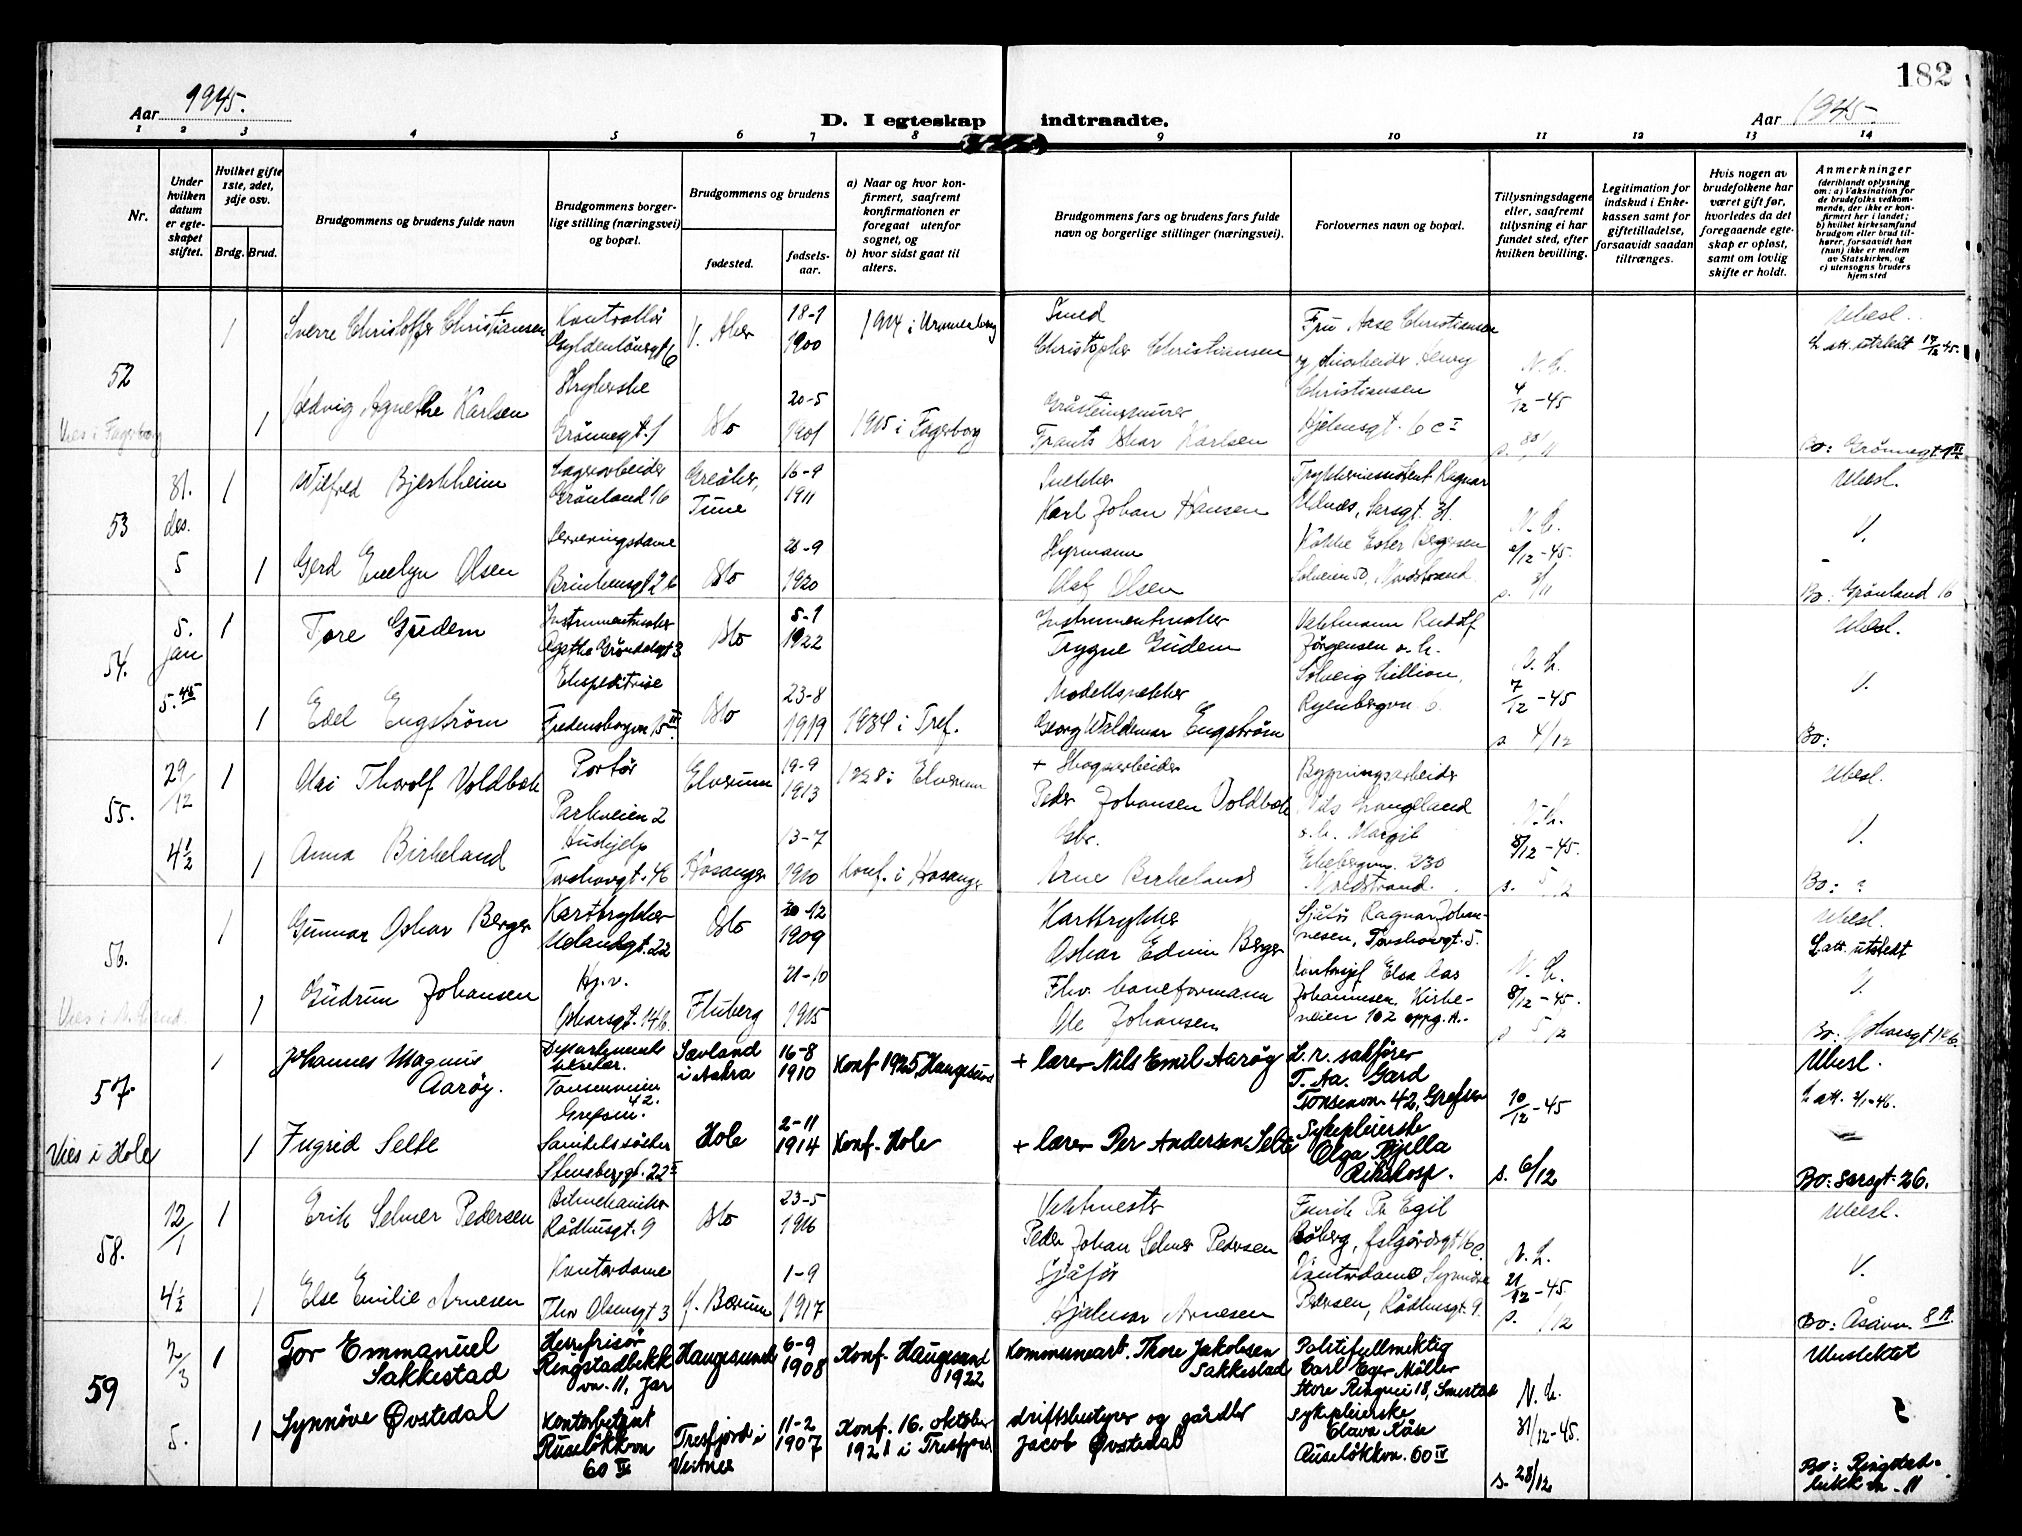 182
Aar 1945.
D. I egteskap indtraadte.
Aar 1945.
1 2 3 4 5 6 7 8 9 10 11 12 13 14
Nr.
Under hvilken datum er egteskapet stiftet.
Hvilket gifte 1ste, 2det, 3dje osv.
Brdg. Brud.
Brudgommens og brudens fulde navn
Brudgommens borgerlige stilling (næringsvei) og bopæl.
Brudgommens og brudens
fødested.
fødselsaar.
a) Naar og hvor konfirmert, saafremt konfirmationen er foregaat utenfor sognet, og
b) hvor sidst gaat til alters.
Brudgommens fars og brudens fars fulde navn og borgerlige stillinger (næringsvei).
Forlovernes navn og bopæl.
Tillysningsdagene eller, saafremt tillysning ei har fundet sted, efter hvilken bevilling.
Legitimation for indskud i Enkekassen samt for giftetilladelse, forsaavidt saadan tiltrænges.
Hvis nogen av brudefolkene har været gift før, hvorledes da det foregaaende egteskap er opløst, samt om lovlig skifte er holdt.
Anmerkninger
(deriblandt oplysning om: a) Vaksination for de brudefolks vedkommende, der ikke er konfirmert her i landet;
b) hvilket kirkesamfund brudgom eller brud tilhører, forsaavidt han (hun) ikke er medlem av Statskirken, og
c) utensogns bruders hjemsted
52
1 Sverre Christoffer Christiansen
Kontrollør
Gyldenløvesgt 6
V. Aker
18-1
1900
1914 i Uranienborg
Smed
Christopher Christiansen
Fru Aase Christiansen
Henry
Christiansen
Hjelmsgt. 6 c I
4/12-45
Ubesl.
L. att. utstedt 17/12 45.
Vies i Fagerborg
1 Hedvig Agnethe Karlsen
Grønnegt. 1
Oslo
20-5
1901
1915 i Fagerborg
Frants Oskar Karlsen
Bo: Grønnegt. 1 III
53
31. des.
5
1 Wilfred Bjerkheim
Lagerarbeider
Grønland 16
Greåker, Tune
16-9
1911
Snekker
Karl Johan Hansen
Ragnar
Sarsgt.
Ubesl.
1 Gerd Evelyn Olsen
Serveringsdame
Oslo
20-9
1920
Hyrmann
Olaf Olsen
Nordstrand.
V.
Bo: Grønland 16
54.
5. jan
5. 45
1 Tore Gudem
Instrumentmaker
Agathe Grøndalsgt 3
Oslo
5-1
1922
Instrumentmaker
Trygve Gudem
Rudolf
Jørgensen o. h.
Solveig Lillian,
7/12-45
s. 4/12
Ubesl.
1 Edel Engstrøm
Ekspeditrise
Fredensborgvn 15 III
Oslo
23-8
1919
1934 i Tref.
Modellsnekker
Georg Waldemar Engstrøm
V.
Bo:
55.
29/12
4 1/2
1 Olai Thorolf Voldbæk
Portør
Parkveien 2
Elverum
19-9
1913
1928 i Elverum
+ Skogsarbeider
Peder Johansen Voldbæk
Bygningsarbeider
Nils Langeland
o. h. Margit
Nordstrand.
8/12-45.
Ubesl.
1 Anna Birkeland
Hushjelp
Torshovgt. 46
Hosanger
13-7
1910
Konf. i Hosanger
Gbr.
Arne Birkeland
V.
Bo: ?
56.
1 Gunnar Oskar Berger
Karttrykker
Uelandsgt. 22
Oslo
20-12
1909
Karttrykker
Oskar Edwin Berger
Sjåfør Ragnar Johannesen, Torshovgt. 5.
8/12-45.
Ubesl.
L. att. utstedt
1 Gudrun Johansen
Hj. v.
Oskarsgt. 14 b.
Fluberg
21-10
1915
Fhv. baneformann
Ole Johansen
Elsa
Johannesen, Kirkeveien 102 oppg. A.
V.
57.
1 Johannes Magnus Aarøy.
Departements sekretær.
Tonsenveien 42.
Grefsen.
Sævland i Aakra
16-8
1910
Konf 1925, Haugesund
+ lærer Nils Emil Aarøy
L. r. sakfører
T. Aa. Gard
Tonsenvn. 42, Grefsen
10/12-45
s. 6/12
Ubesl.
L att. 2/1-46.
Vies i Hole
1 Ingrid Selte
Stensberggt. 22 II
Hole
2-11
1914
Konf. Hole
+ lærer Per Andersen Selte
Sykepleierske
Olga Kjella
Rikshosp.
Bo: Sarsgt. 26.
58.
12/1
4 1/2
1 Erik Selmer Pedersen
Bilmekaniker
Rådhusgt. 9
Oslo
23-5
1916
Vektmester
Peder Johan Selmer Pedersen
Egil
21/12-45.
Ubesl.
1 Else Emilie Arnesen
Kontordame
Thv Olsensgt 3
V. Bærum
1-9
1917
Sjåfør
Hjalmar Arnesen
Kontordame Synnøve
Pedersen, Rådhusgt. 9.
V.
Bo: Åsavn. 8 A
59
2/3
5.
1 Tor Emmanuel Sakkestad
Herrefrisør
Ringstadbekk vn. 11, Jar
Haugesund
6-9
1908
Konf. Haugesund 1922
Kommunearb. Thore Jakobsen Sakkestad
Politifullmektig
Carl Eger Møller
Store Ringvei 18, Smestad
N. L.
31/12-45.
s. 28/12
Ubeslektet
1 Synnøve Øvstedal
Kontorbetjent
Ruseløkkvn 60 IV
Tresfjord i Vestnes
11-2
1907
Konf. 16. oktober 1921 i Tresfjord
driftsbestyrer og gårdbr
Jacob Øvstedal
Sykepleierske
Clara Kåse
Ruseløkkvn. 60 IV
Bo: Ringstadbekk vn. 11